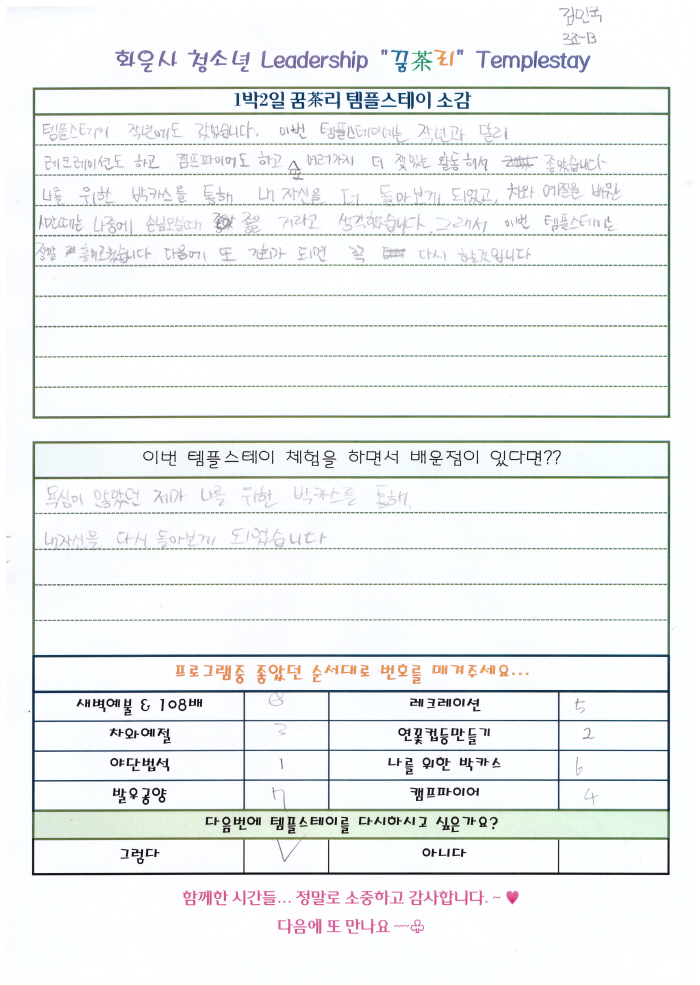 김민국
화운사 청소년 Leadership "꿈茶리" Templestay
1박2일 꿈茶리 템플스테이 소감
템플스테이 작년에도 갔었습니다. 이번 템플스테이에는 작년과 달리
레크레이션도 하고 캠프파이어도 하고 여러가지 더 잿있는 활동해서 좋았습니다
나를 위한 박카스를 통해 내 자신을 더 돌아보게 되었고, 차와 예절을 배운
나중에 손님오실때 좋을 거라고 생각했습니다 그래서 이번 템플스테이는
정말 흥미로웠습니다. 다음에 또 기회가 되면 꼭 다시 할것입니다
이번 템플스테이 체험을 하면서 배운점이 있다면??
욕심이 많았던 제가 나를 위한 박카스를 통해,
내자신을 다시 돌아보게 되었습니다
프로그램중 좋았던 순서대로 번호를 매겨주세요...
새벽예불 & 108배 8 레크레이션 5
차와예절 3 연꽃컵등만들기 2
야단법석 1 나를 위한 박카스 6
발우공양 7 캠프파이어 4
다음번에 템플스테이를 다시하시고 싶은가요?
그렇다 ✓ 아니다
함께한 시간들... 정말로 소중하고 감사합니다. ~ ♥
다음에 또 만나요 ~~♧